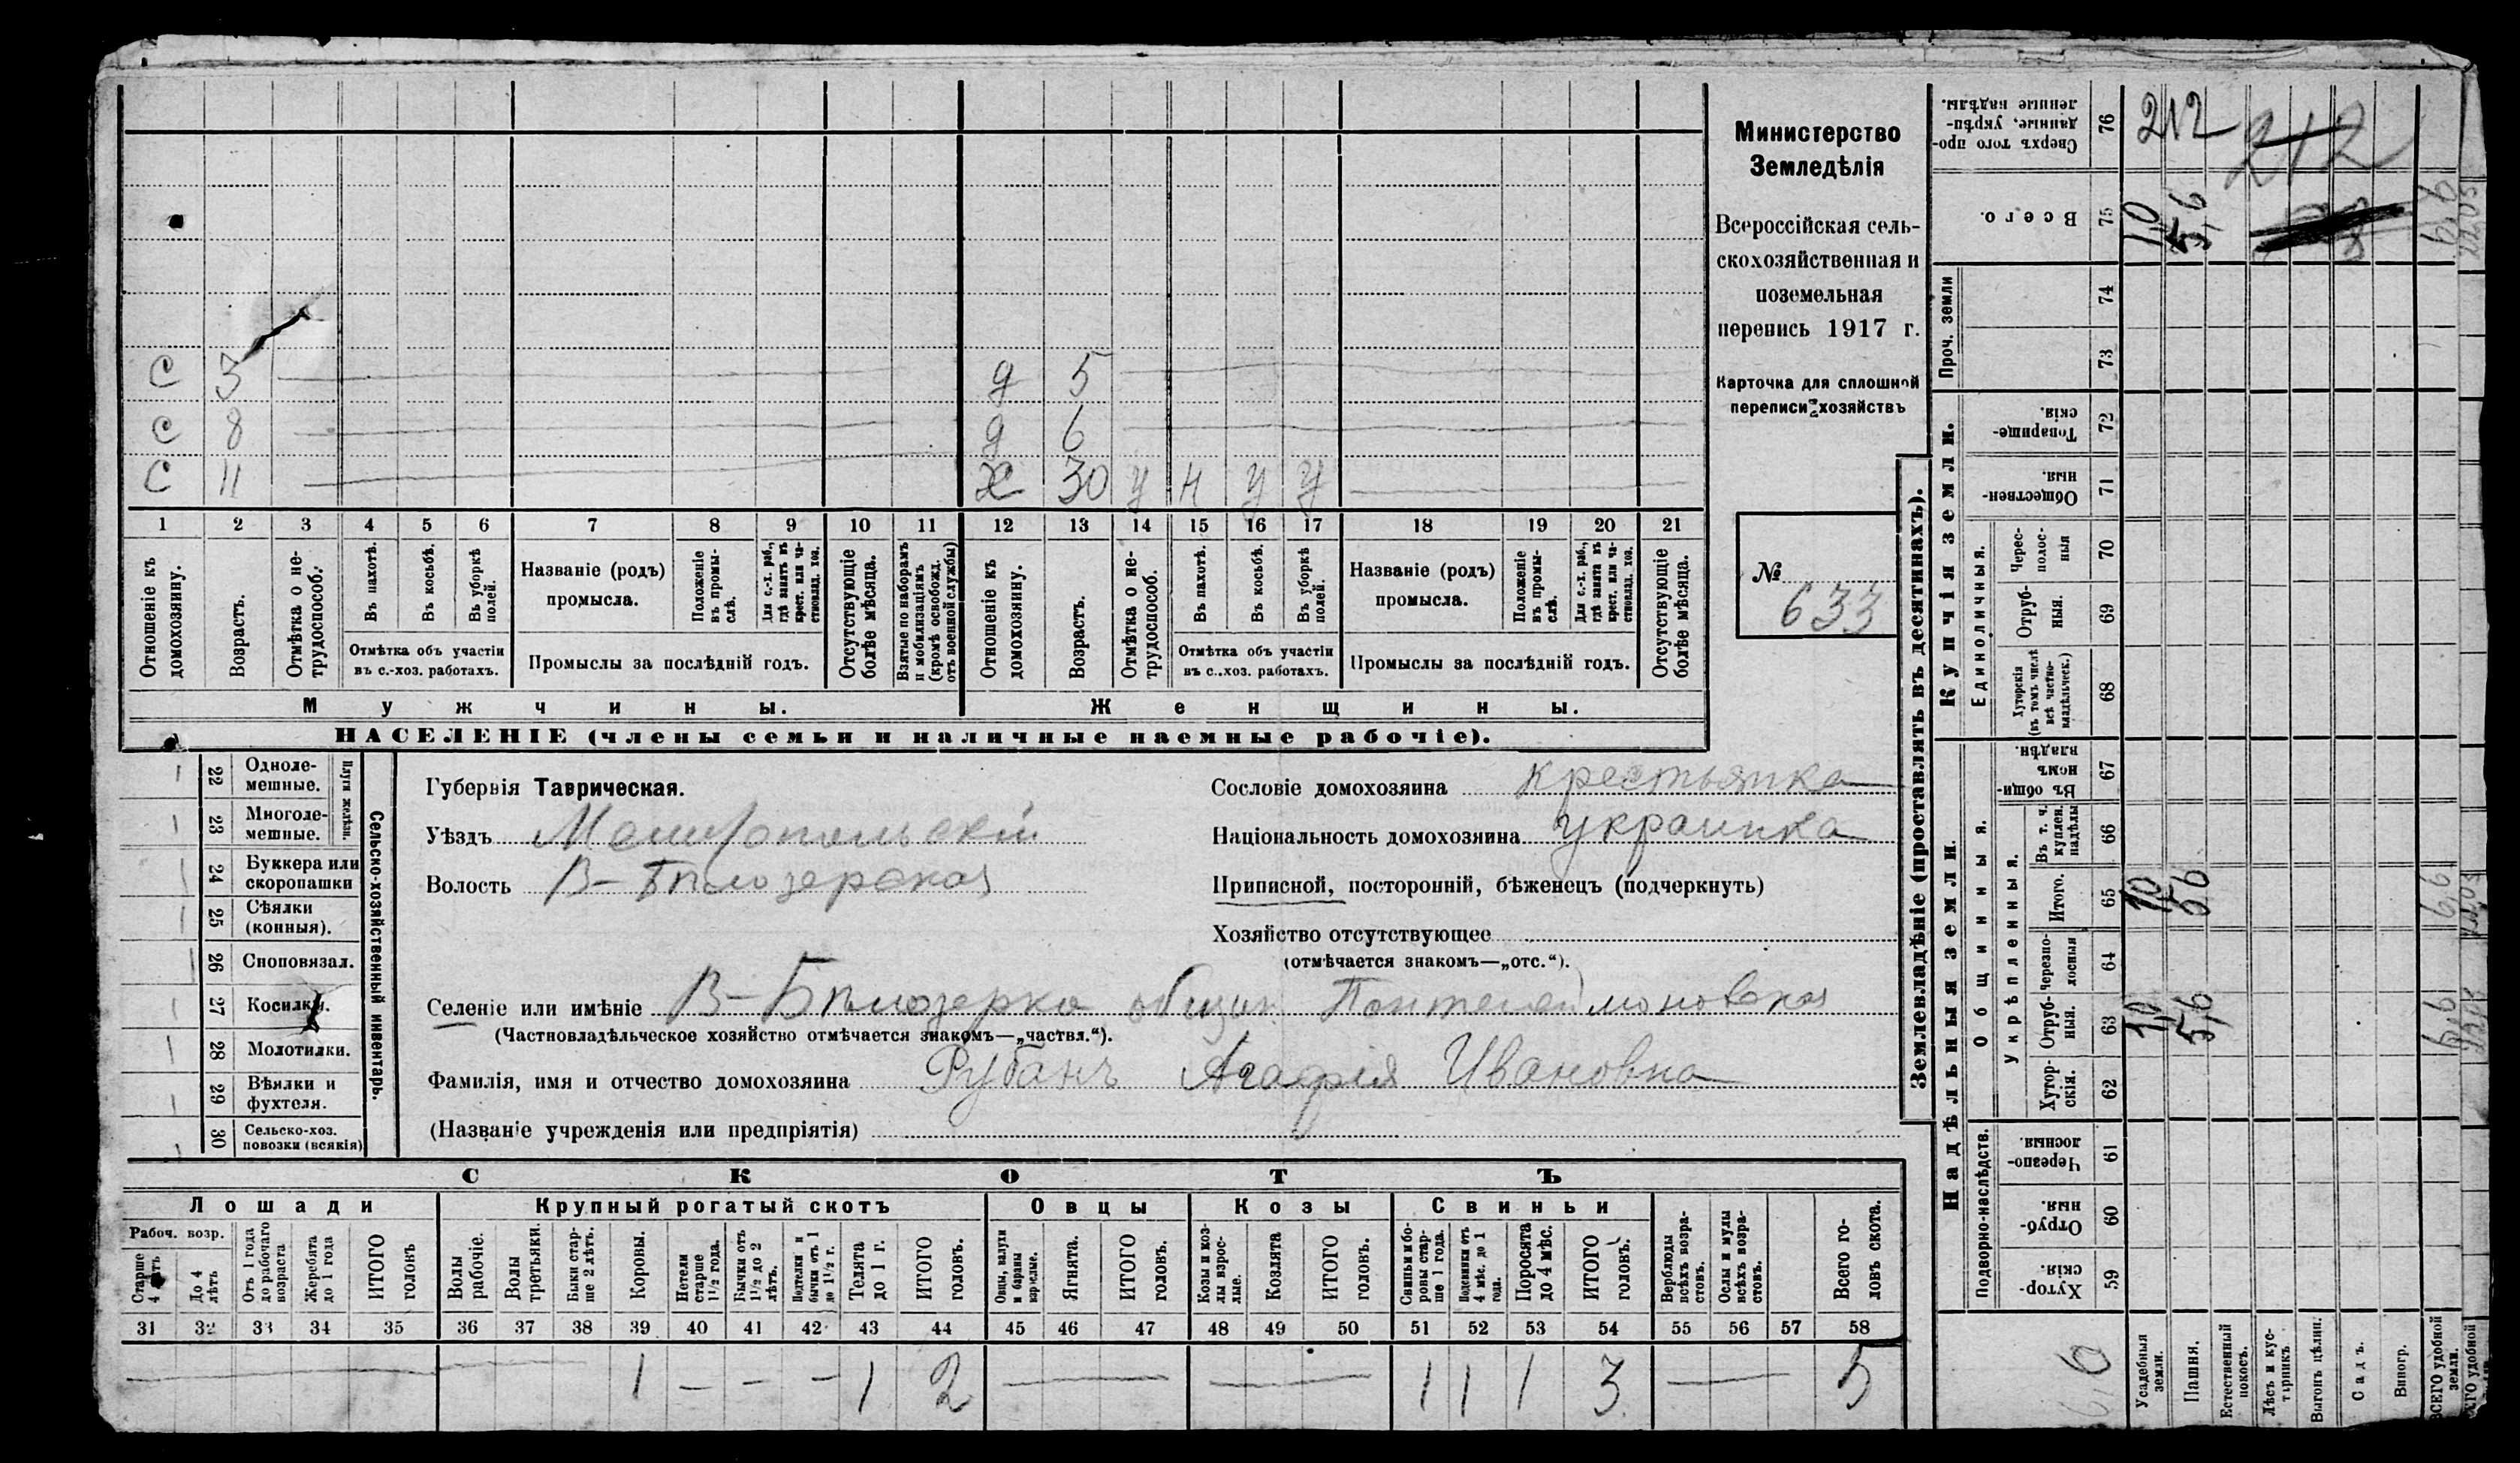 Министерство
Земледѣлія
Всероссійская сель-
скохозяйственная и
поземельная
перепись 1917 г.
Карточка для сплошной
переписи хозяйствъ
№
633
С 3 д 5
С 8 д 6
С 11 Х 30 у н у у
1 2 3 4 5 6 7 8 9 10 11 12 13 14 15 16 17 18 19 20 21
Отношеніе къ домохозяину.
Возрастъ.
Отмѣтка о не-трудоспособ.
Въ пахотѣ.
Въ косьбѣ.
Въ уборкѣ полей.
Отмѣтка объ участіи
въ с.-хоз. работахъ.
Названіе (родъ)
промысла.
Положеніе въ промы-слѣ.
Для с.-х. раб., гдѣ занятъ въ крест. или ча-стновлад. хоз.
Промыслы за послѣдній годъ.
Отсутствующіе болѣе мѣсяца.
Взятые по наборамъ и мобилизаціямъ (кромѣ освобожд. отъ военной службы)
Отношеніе къ домохозяину.
Возрастъ.
Отмѣтка о не-трудоспособ.
Въ пахотѣ.
Въ косьбѣ.
Въ уборкѣ полей.
Отмѣтка объ участіи
въ с..хоз. работахъ.
Названіе (родъ)
промысла.
Положеніе въ промы-слѣ.
Для с.-х. раб., гдѣ занята въ крест. или ча-стновлад. хоз.
Промыслы за послѣдній годъ.
Отсутствующіе болѣе мѣсяца.
Мужчины.
Женщины.
НАСЕЛЕНІЕ (члены семьи и наличные наемные рабочіе).
22 Одноле-мешные.
23 Многоле-мешные.
Плуги желѣзн.
24 Буккера или скоропашки
25 Сѣялки (конныя).
26 Сноповязал.
27 Косилки.
28 Молотилки.
29 Вѣялки и фухтеля.
30 Сельско-хоз. повозки (всякія)
Сельско-хозяйственный инвентарь.
Губернія Таврическая.
Уѣздъ Мелитопольскій
Волость В-Бѣлозерская
Сословіе домохозяина крестьянка
Національность домохозяина украинка
Приписной, посторонній, бѣженецъ (подчеркнуть)
Хозяйство отсутствующее
(отмѣчается знакомъ—„отс.“).
Селеніе или имѣніе В-Бѣлозерка общин. Пантелеймоновская
(Частновладѣльческое хозяйство отмѣчается знакомъ—„частвл.“).
Фамилія, имя и отчество домохозяина Рубанъ Агафія Ивановна
(Названіе учрежденія или предпріятія)
СКОТЪ
Лошади
Крупный рогатый скотъ
Овцы
Козы
Свиньи
Рабоч. возр.
Старше 4 лѣтъ
До 4 лѣтъ
Отъ 1 года до рабочаго возраста
Жеребята до 1 года
ИТОГО головъ
Волы рабочіе.
Волы третьяки.
Быки стар-ше 2 лѣтъ.
Коровы.
Нетели старше 1½ года.
Бычки отъ 1½ до 2 лѣтъ.
Подтелки и бычки отъ 1 до 1½ г.
Телята до 1 г.
ИТОГО головъ.
Овцы, валухи и бараны взрослые.
Ягнята.
ИТОГО головъ.
Козы и коз-лы взрос-лые.
Козлята
ИТОГО головъ.
Свиньи и бо-ровы стар-ше 1 года.
Подсвинки отъ 4 мѣс. до 1 года.
Поросята до 4 мѣс.
ИТОГО головъ.
Верблюды всѣхъ возра-стовъ.
Ослы и мулы всѣхъ возра-стовъ.
Всего го-ловъ скота.
31 32 33 34 35 36 37 38 39 40 41 42 43 44 45 46 47 48 49 50 51 52 53 54 55 56 57 58
1 – – – 1 2 1 1 1 3 5
Землевладѣніе (проставлять въ десятинахъ).
Надѣльныя земли.
Купчія земли.
Проч. земли
Подворно-наслѣдств.
Общинныя.
Укрѣпленныя.
Единоличныя.
Сверхъ того про-данные, укрѣп-ленные надѣлы. 76
Всего. 75
74
73
Товарище-скія. 72
Обществен-ныя. 71
Черес-полос-ныя 70
Отруб-ныя. 69
Хуторскія (въ томъ числѣ всѣ частно-владѣльческ.) 68
Въ общин-номъ владѣн. 67
Въ т. ч. куплен. надѣлы 66
Итого. 65
Черезпо-лосныя 64
Отруб-ныя. 63
Хутор-скія. 62
Черезпо-лосныя. 61
Отруб-ныя. 60
Хутор-скія. 59
212
212
1,0 5,6
1,0 5,6
1,0 5,6
6,6
6,6
6,6
6
Усадебныя земли.
Пашня.
Естественный покосъ.
Лѣсъ и кус-тарникъ.
Выгонъ цѣлин.
Садъ.
Виногр.
ВСЕГО удобной земли.